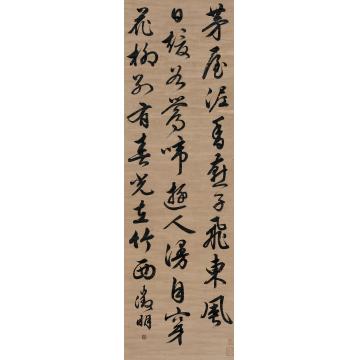 茅屋泥香燕子飛東風
日暖谷鶯啼遊人漫自穿
花柳別有春光在竹西徵明